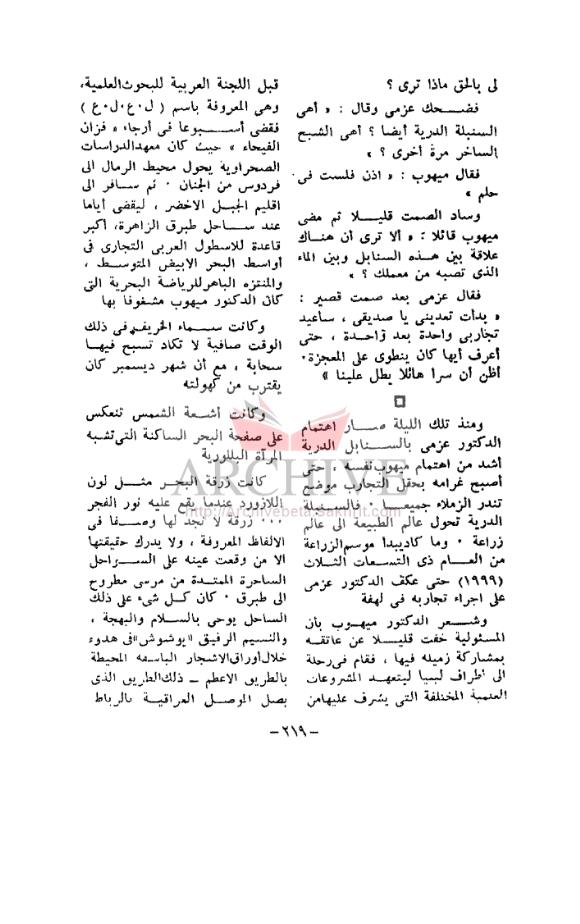 لى بالحق ماذا ترى ؟
فضحك عزمى وقال : « أهى
السنبلة الدرية أيضا ؟ أهى الشبح
الساخر مرة أخرى ؟ »
فقال ميهوب : « اذن فلست فى
حلم »
وساد الصمت قليلا ثم مضى
ميهوب قائلا : « ألا ترى أن هناك
علاقة بين هذه السنابل وبين الماء
الذى تصبه من معملك ؟ »
فقال عزمى بعد صمت قصير :
« بدأت تعدينى يا صديقى ، ساعيد
تجاربى واحدة بعد واحدة ، حتى
أعرف أيها كان ينطوى على المعجزة ·
أظن أن سرا هائلا يطل علينا »
ومنذ تلك الليلة صار اهتمام
الدكتور عزمى بالسنابل الدرية
أشد من اهتمام ميهوب نفسه ، حتى
أصبح غرامه بحقل التجارب موضع
تندر الزملاء جميعا · فالسنبلة
الدرية تحول عالم الطبيعة الى عالم
زراعة · وما كاد يبدأ موسم الزراعة
من العام ذى التسعات الثلاث
(١٩٩٩) حتى عكف الدكتور عزمى
على اجراء تجاربه فى لهفة
وشعر الدكتور ميهوب بان
المسئولية خفت قليلا عن عاتقه
بمشاركة زميله فيها ، فقام فى رحلة
الى أطراف ليبيا ليتعهد المشروعات
العلمية المختلفة التى يشرف عليها من
قبل اللجنة العربية للبحوث العلمية،
وهى المعروفة باسم ( ل·ع·ل·ع )
فقضى أسبوعا فى أرجاء « فزان
الفيحاء » حيث كان معهد الدراسات
الصحراوية يحول محيط الرمال الى
فردوس من الجنان · ثم سافر الى
اقليم الجبل الاخضر ، ليقضى أياما
عند ساحل طبرق الزاهرة، أكبر
قاعدة للاسطول العربى التجارى فى
أواسط البحر الابيض المتوسط ،
والمنتزه الباهر للرياضة البحرية التى
كان الدكتور ميهوب مشغوفا بها
وكانت سماء الخريف فى ذلك
الوقت صافية لا تكاد تسبح فيها
سحابة ، مع أن شهر ديسمبر كان
يقترب من كهولته
وكانت أشعة الشمس تنعكس
على صفحة البحر الساكنة التى تشبه
المرآة البللورية
كانت زرقة البحر مثل لون
اللازورد عندما يقع عليه نور الفجر
··· زرقة لا تجد لها وصفا فى
الالفاظ المعروفة ، ولا يدرك حقيقتها
الا من وقعت عينه على السواحل
الساحرة الممتدة من مرسى مطروح
الى طبرق · كان كل شىء على ذلك
الساحل يوحى بالسلام والبهجة ،
والنسيم الرفيق «يوشوش» فى هدوء
خلال أوراق الاشجار الباسقة المحيطة
بالطريق الاعظم – ذلك الطريق الذى
يصل الموصل العراقية بالرباط
ARCHIVE
http://Archivebeta.Sakhrit.com
– ٢١٩ –